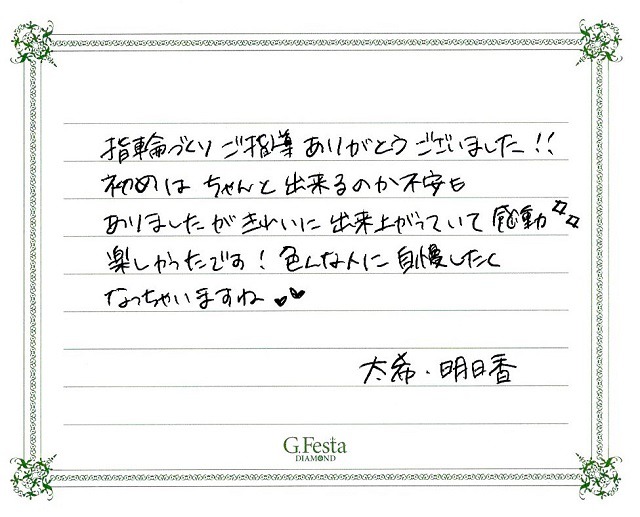 指輪づくりご指導ありがとうございました!!
初めはちゃんと出来るのか不安も
ありましたがきれいに出来上がっていて感動☆☆
楽しかったです!色んな人に自慢したく
なっちゃいますね♥♥
太希・明日香
G.Festa
DIAMOND